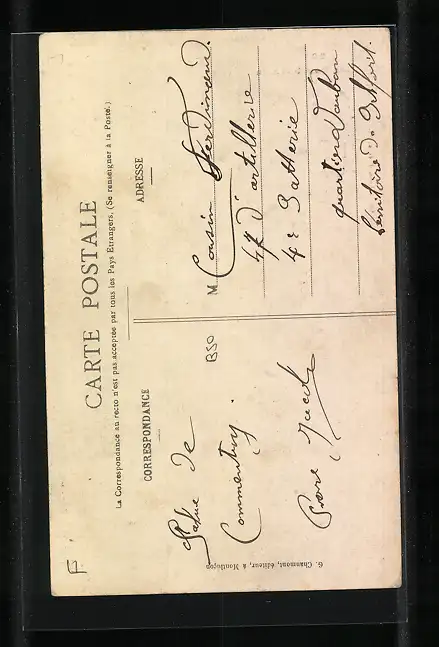 CARTE POSTALE
La Correspondance au recto n'est pas acceptée par tous les Pays Etrangers. (Se renseigner à la Poste.)
CORRESPONDANCE
ADRESSE
de
Commentry
B50
M. Cousin Ferdinand.
47 d'artillerie
4e Batterie
quartier Vauban
Territoire de Belfort.
G. Chaumont, éditeur, à Montluçon
F